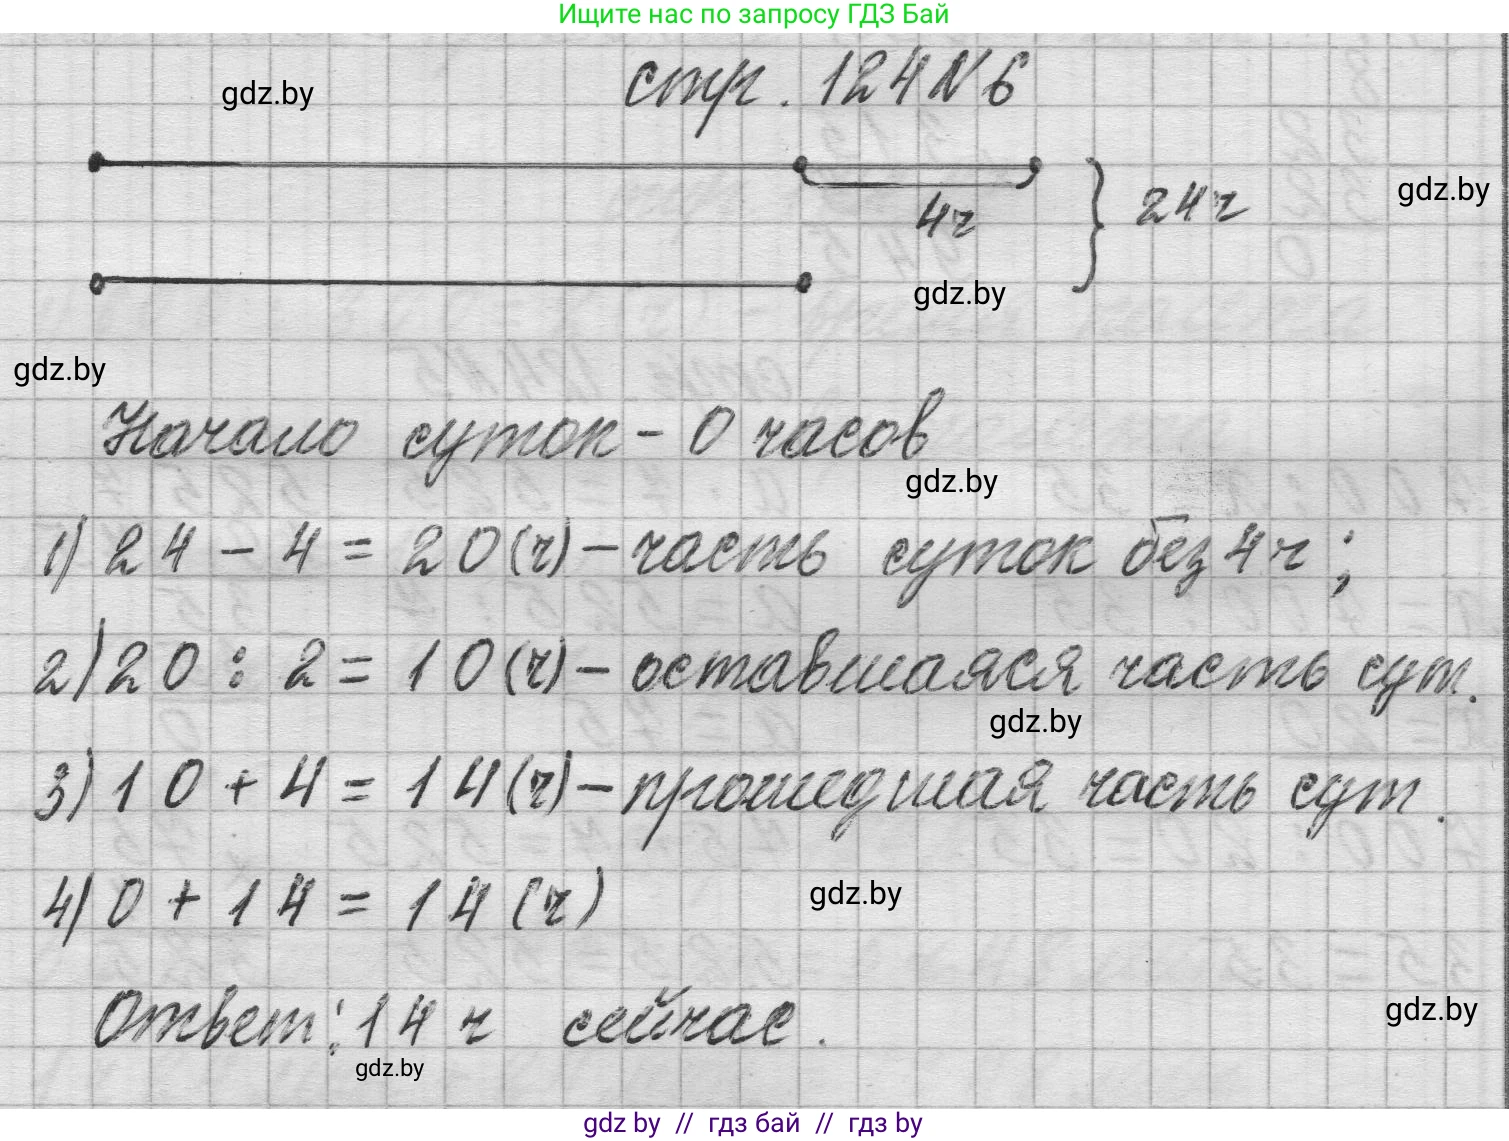 Ищите нас по запросу ГДЗ Бай
gdz.by
стр. 124 N 6
gdz.by
4ч
24ч
gdz.by
gdz.by
Начало суток - 0 часов
gdz.by
1) 24 - 4 = 20 (ч) - часть суток без 4 ч ;
2) 20 : 2 = 10 (ч) - оставшаяся часть сут.
gdz.by
3) 10 + 4 = 14 (ч) - прошедшая часть сут.
4) 0 + 14 = 14 (ч)
gdz.by
Ответ: 14 ч сейчас.
gdz.by
gdz.by
gdz by // гдз бай // гдз by